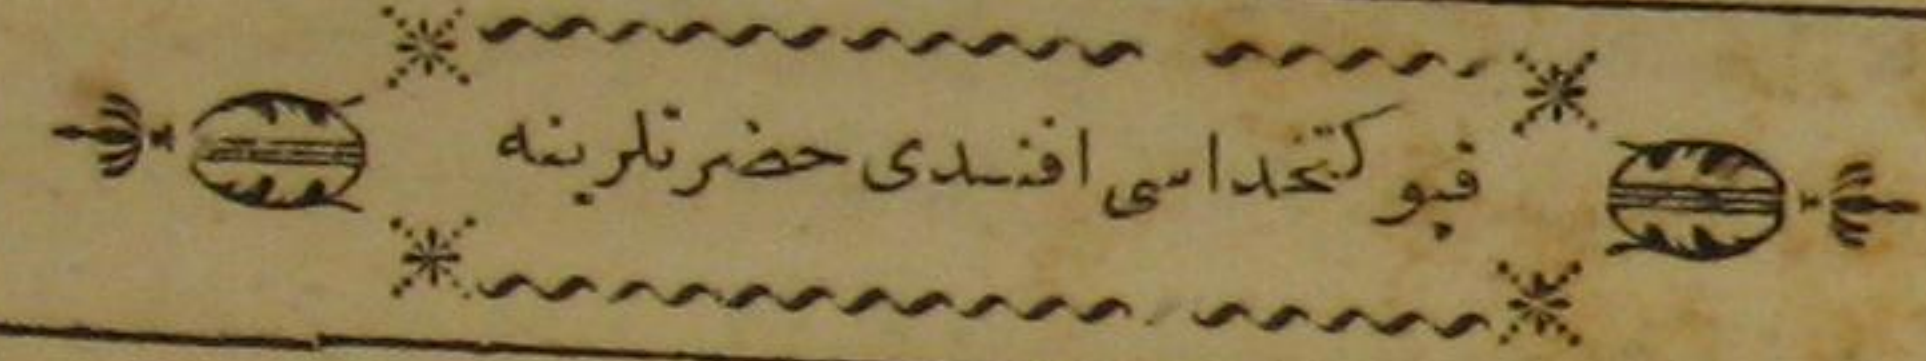 قپو كتخداسی افندی حضرتلرینه